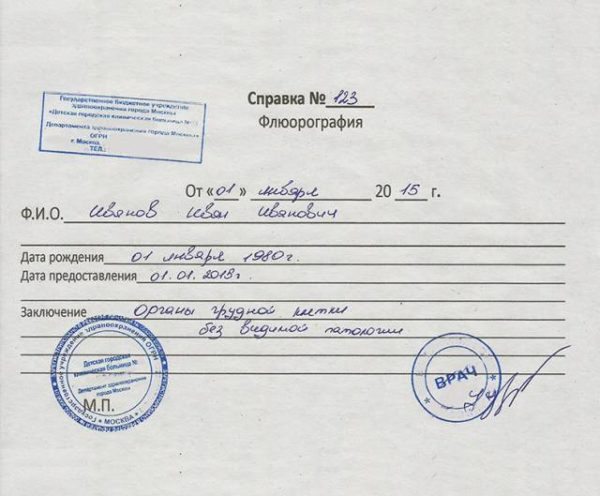 Государственное бюджетное учреждение
здравоохранения города Москвы
«Детская городская клиническая больница №
Департамента здравоохранения города Москвы»
ОГРН
г. Москва,
ТЕЛ.:
Справка № 123
Флюорография
От «01» января 20 15 г.
Ф.И.О. Иванов Иван Иванович
Дата рождения 01 января 1980 г.
Дата предоставления 01.01.2015г.
Заключение Органы грудной клетки
без видимой патологии
Государственное учреждение здравоохранения ОГРН
Детская городская
клиническая больница №
Департамент здравоохранения
города Москвы
* МОСКВА *
М.П.
ВРАЧ